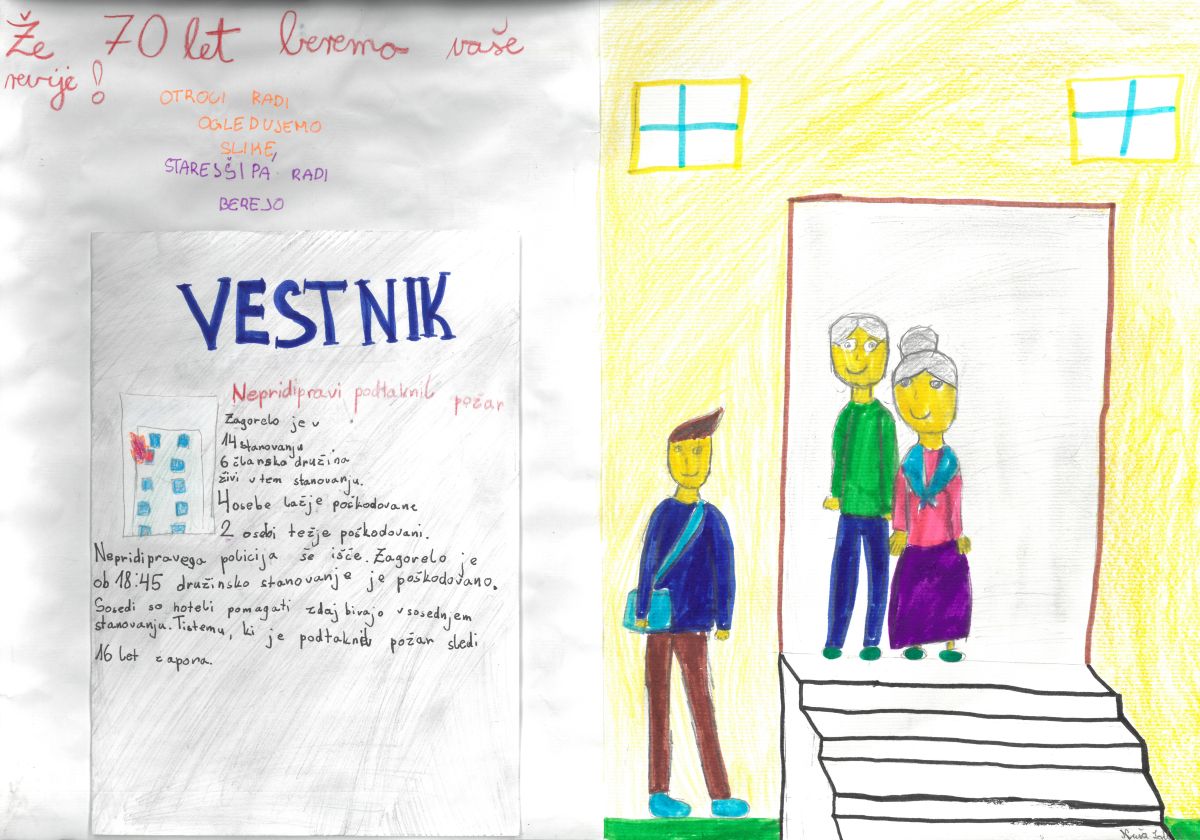 Že 70 let beremo vaše
revije!
OTROCI RADI
OGLEDUJEMO
SLIKE,
STAREJŠI PA RADI
BEREJO
VESTNIK
Nepridipravi podtaknil požar
Zagorelo je v
14 stanovanju
6 članska družina
živi v tem stanovanju.
4 osebe lažje poškodovane
2 osebi težje poškodovani.
Nepridipravega policija še išče. Zagorelo je
ob 18:45 družinsko stanovanje je poškodovano.
Sosedi so hoteli pomagati zdaj bivajo v sosednjem
stanovanju. Tistemu, ki je podtaknil požar sledi
16 let zapora.